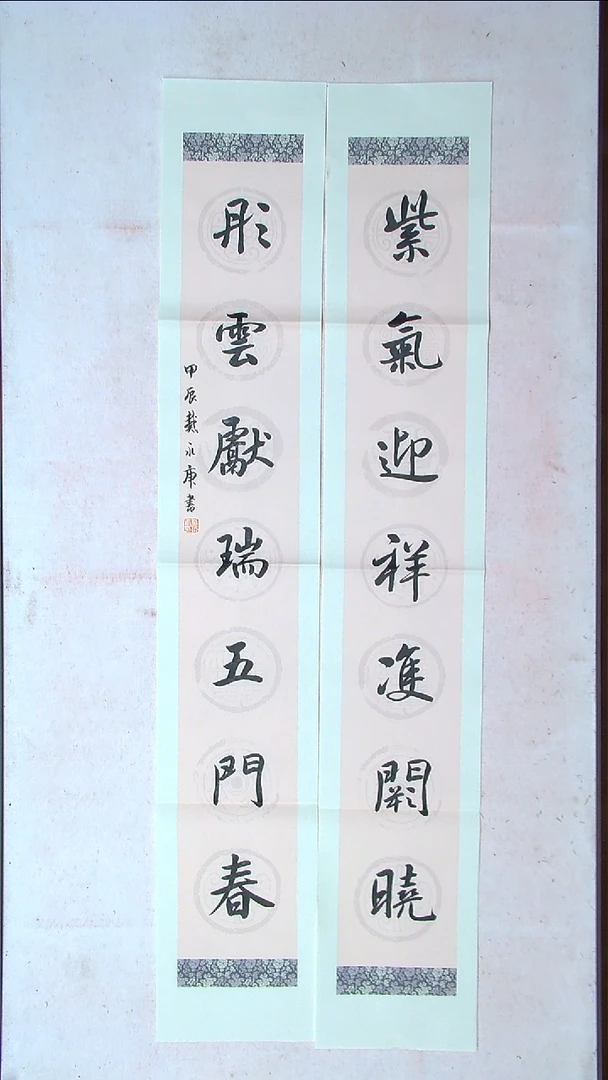 紫氣迎祥雙闕曉
彤雲獻瑞五門春
甲辰戴永庚書